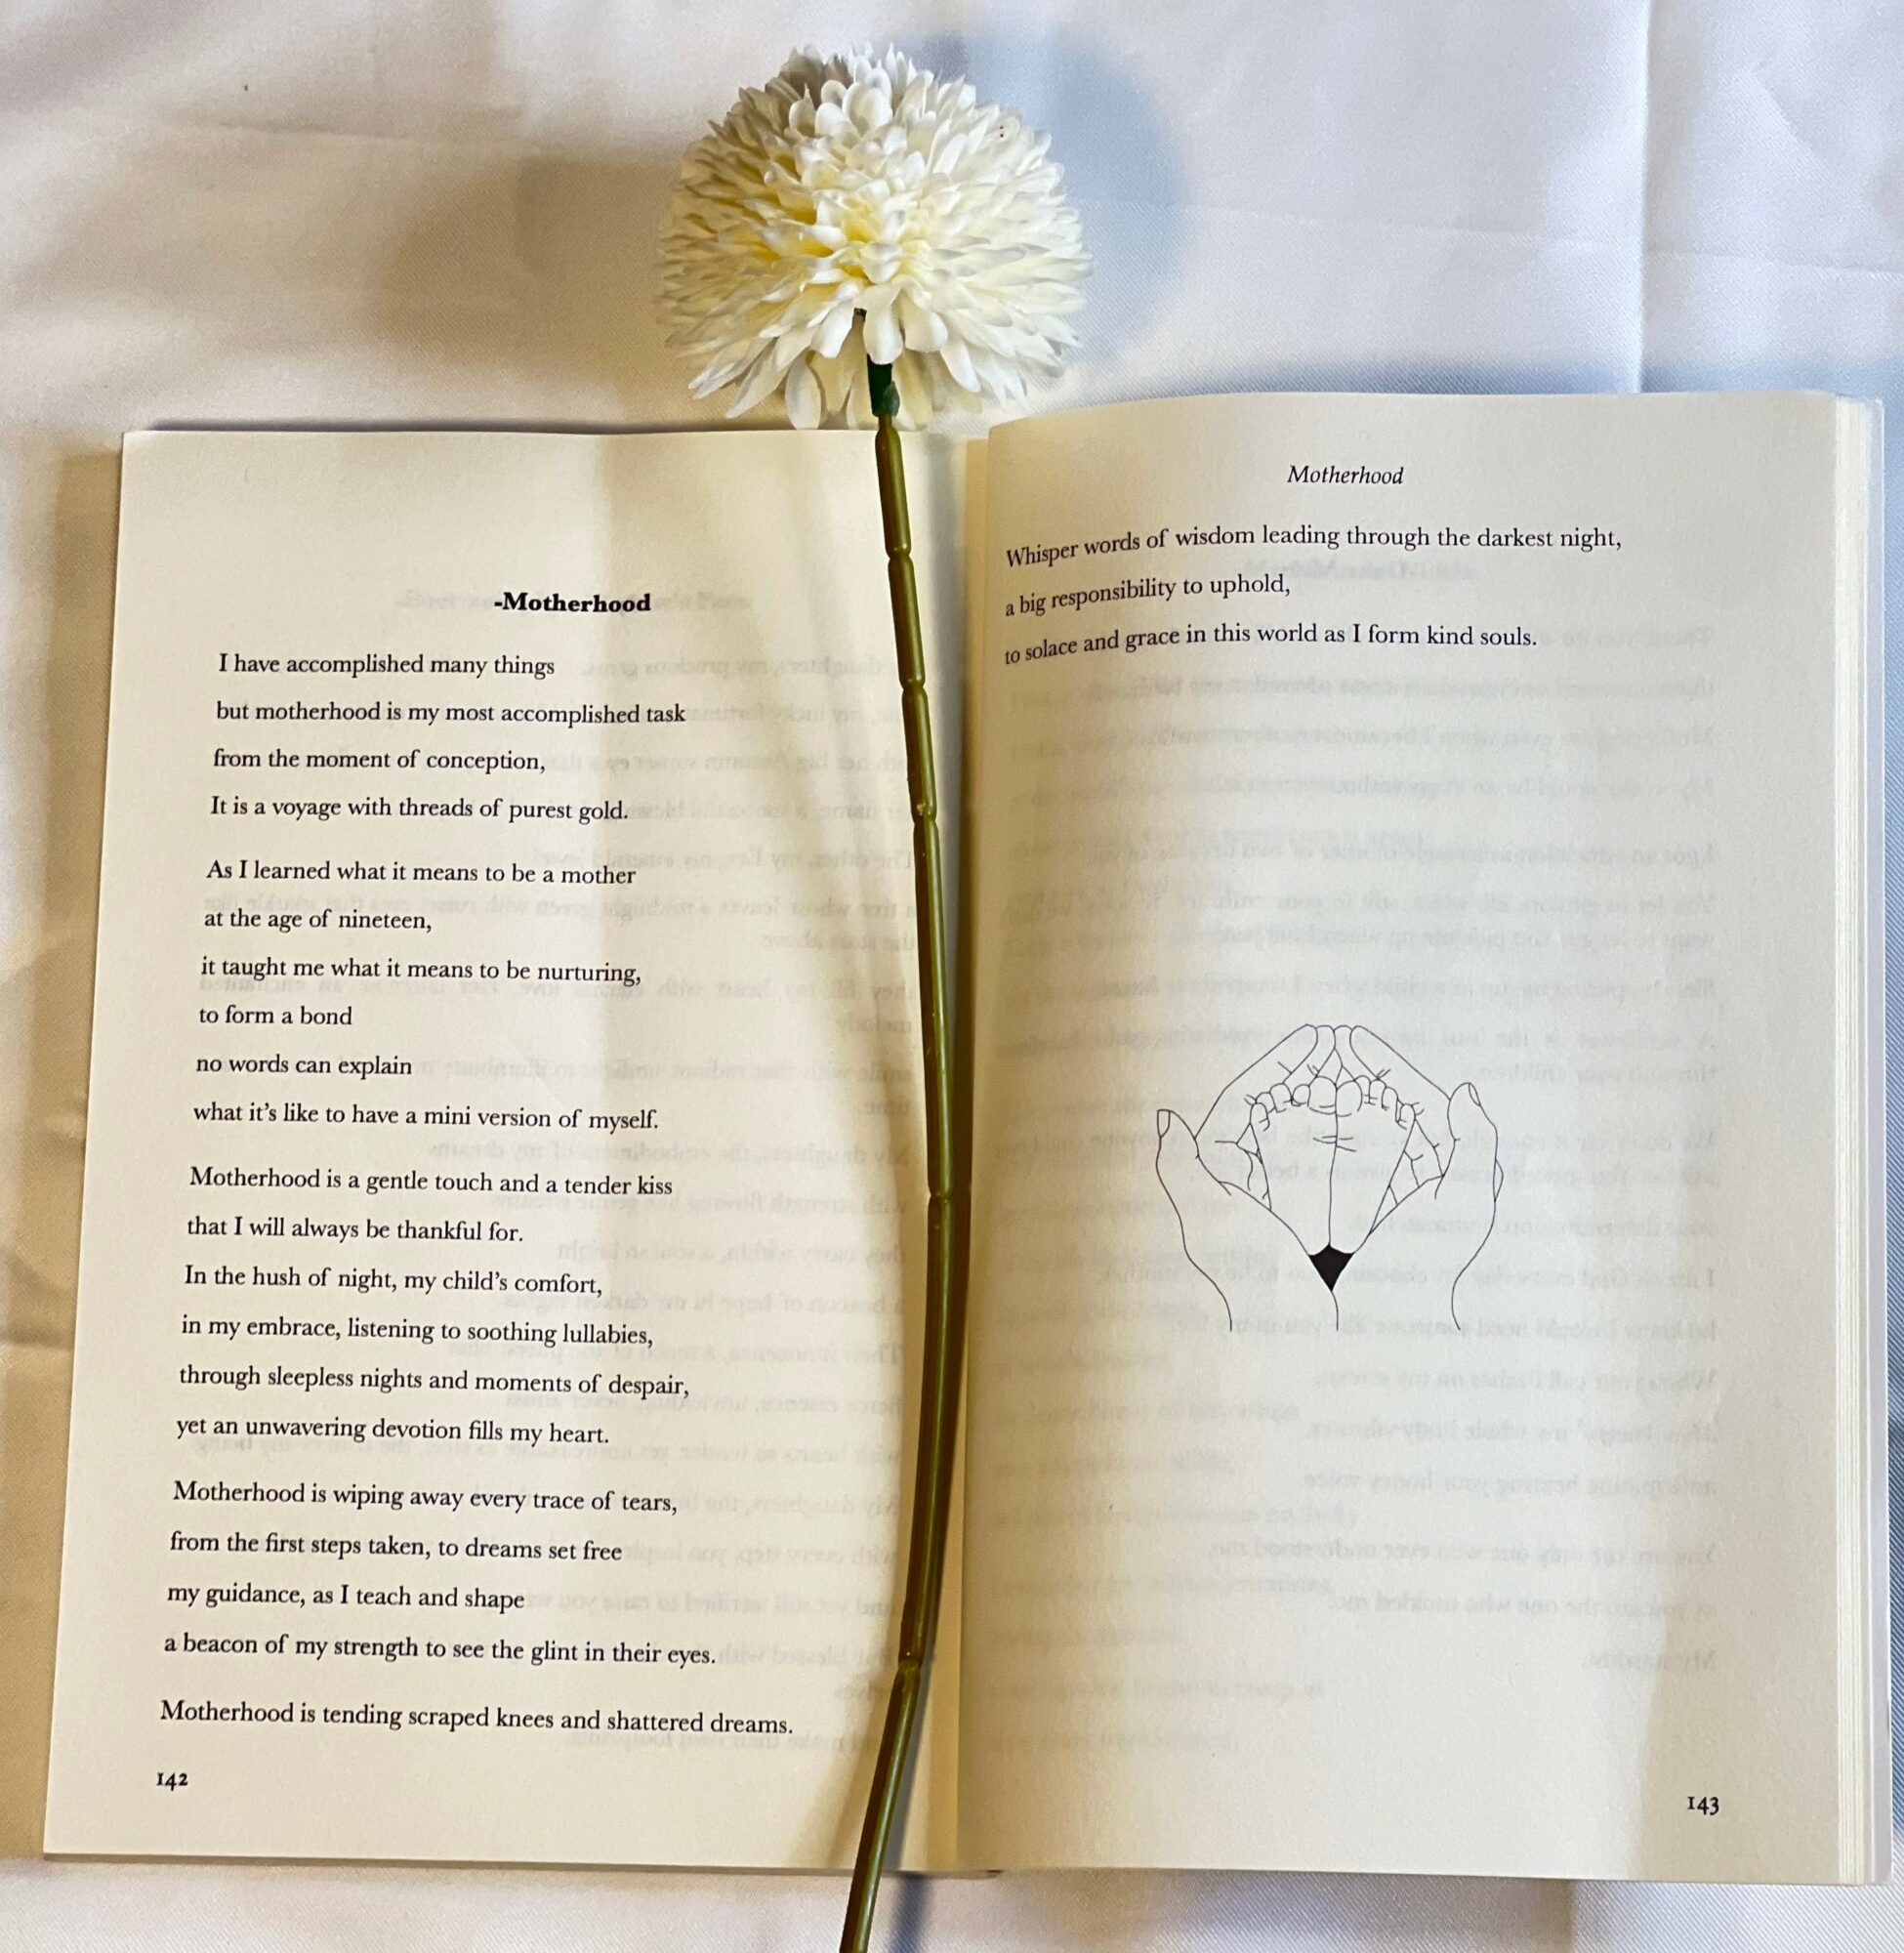 -Motherhood
I have accomplished many things
but motherhood is my most accomplished task
from the moment of conception,
It is a voyage with threads of purest gold.
As I learned what it means to be a mother
at the age of nineteen,
it taught me what it means to be nurturing,
to form a bond
no words can explain
what it’s like to have a mini version of myself.
Motherhood is a gentle touch and a tender kiss
that I will always be thankful for.
In the hush of night, my child’s comfort,
in my embrace, listening to soothing lullabies,
through sleepless nights and moments of despair,
yet an unwavering devotion fills my heart.
Motherhood is wiping away every trace of tears,
from the first steps taken, to dreams set free
my guidance, as I teach and shape
a beacon of my strength to see the glint in their eyes.
Motherhood is tending scraped knees and shattered dreams.
142
Motherhood
Whisper words of wisdom leading through the darkest night,
a big responsibility to uphold,
to solace and grace in this world as I form kind souls.
143